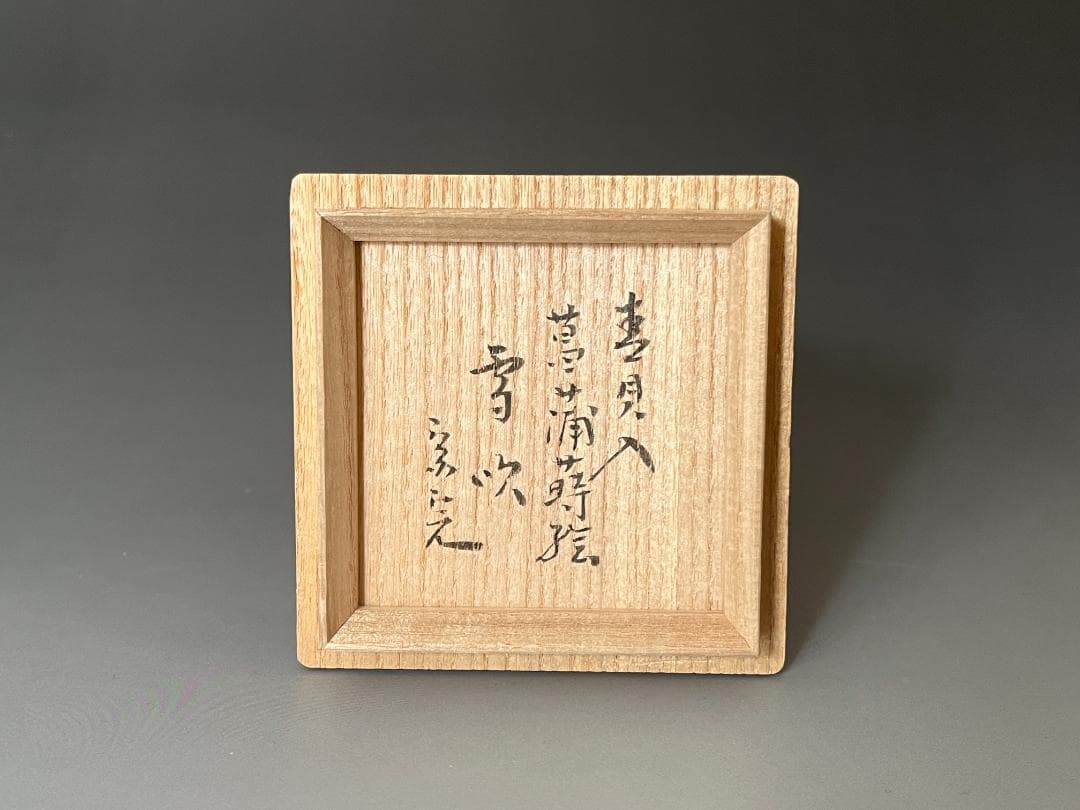 青貝入
菖蒲蒔絵
雪吹